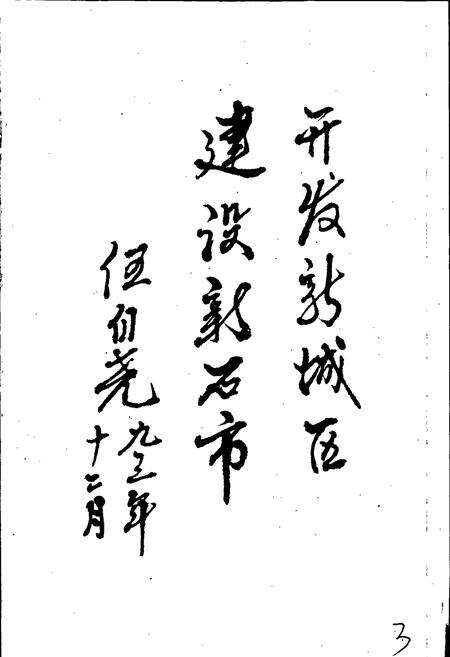 开发新城区
建设新石市
伍自尧
九三年
十二月
3